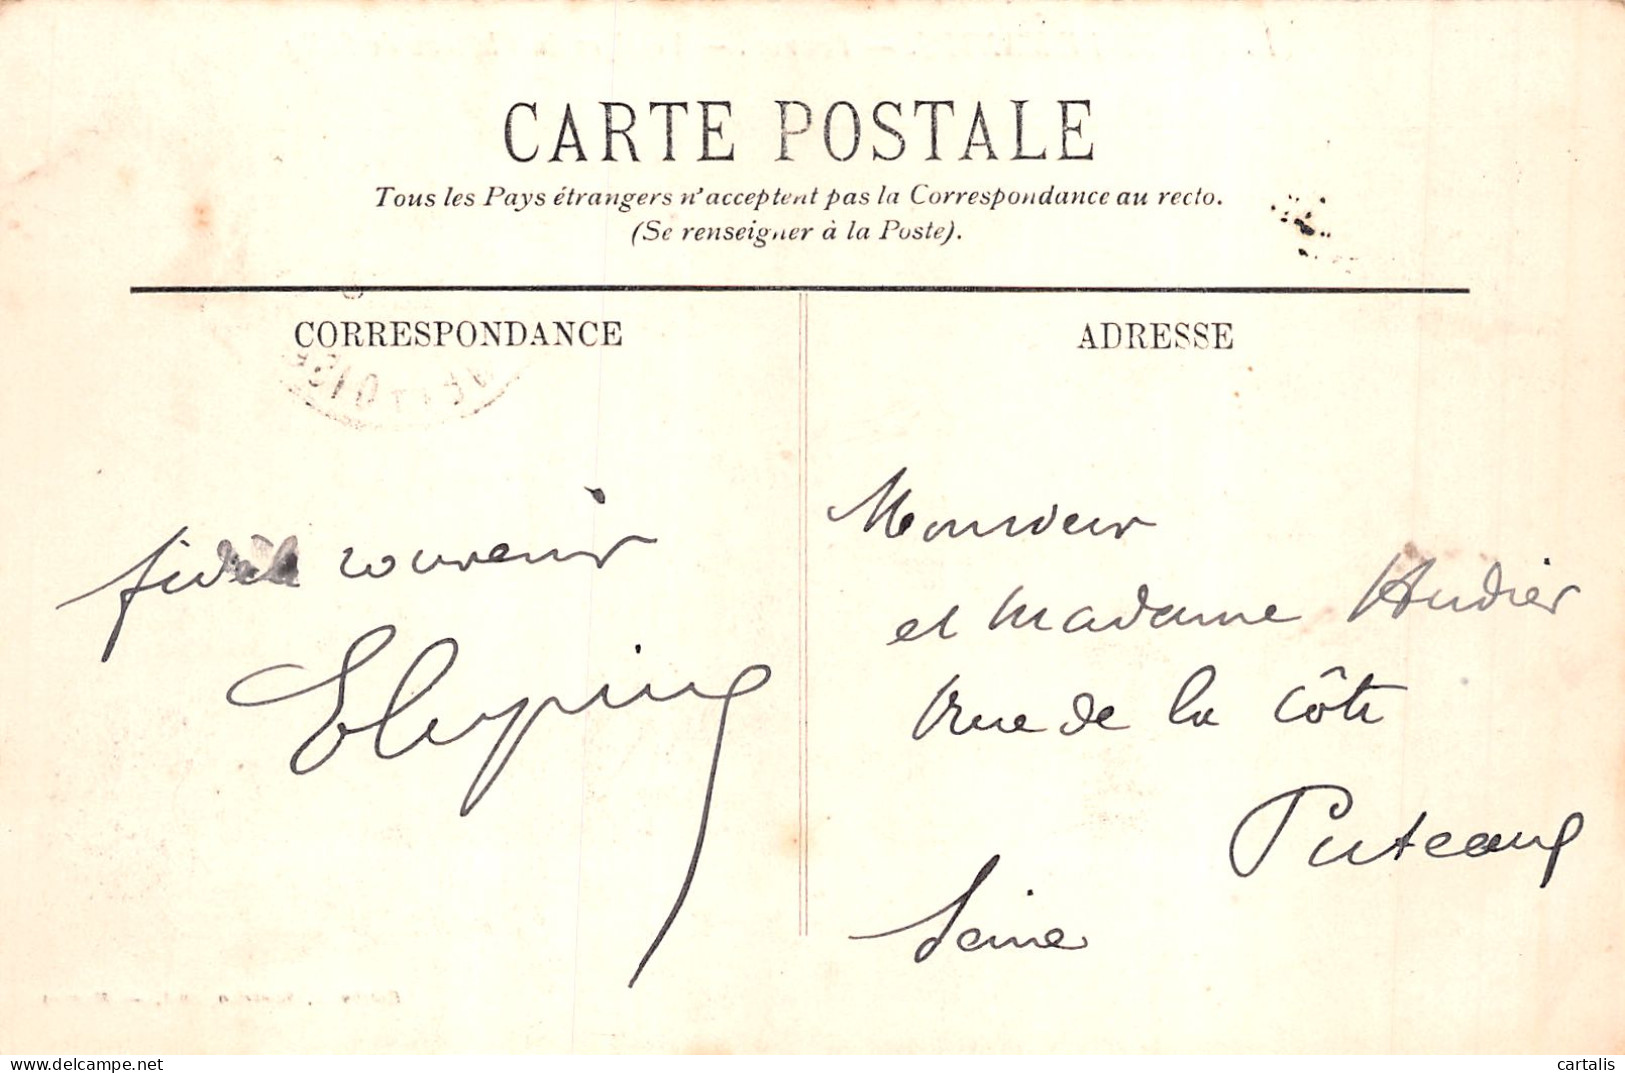 CARTE POSTALE
Tous les Pays étrangers n'acceptent pas la Correspondance au recto.
(Se renseigner à la Poste).
CORRESPONDANCE
ADRESSE
fidèle souvenir
Monsieur
et Madame Audier
rue de la Côte
Puteaux
Seine
www.delcampe.net
cartalis